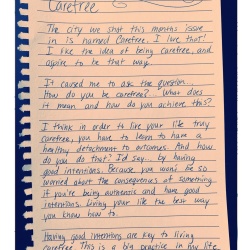 Carefree
The city we shot this months issue
in is named Carefree. I love that!
I like the idea of being carefree, and
aspire to be that way.
It caused me to ask the question...
How do you be carefree? What does
it mean and how do you achieve this?
I think in order to live your life truly
carefree, you have to learn to have a
healthy detachment to outcomes. And how
do you do that? I'd say... by having
good intentions. Because you won't be so
worried about the consequences of something
if you're being authentic and have good
intentions. Living your life the best way
you know how to.
Having good intentions are key to living
carefree. This is a big practice in my life